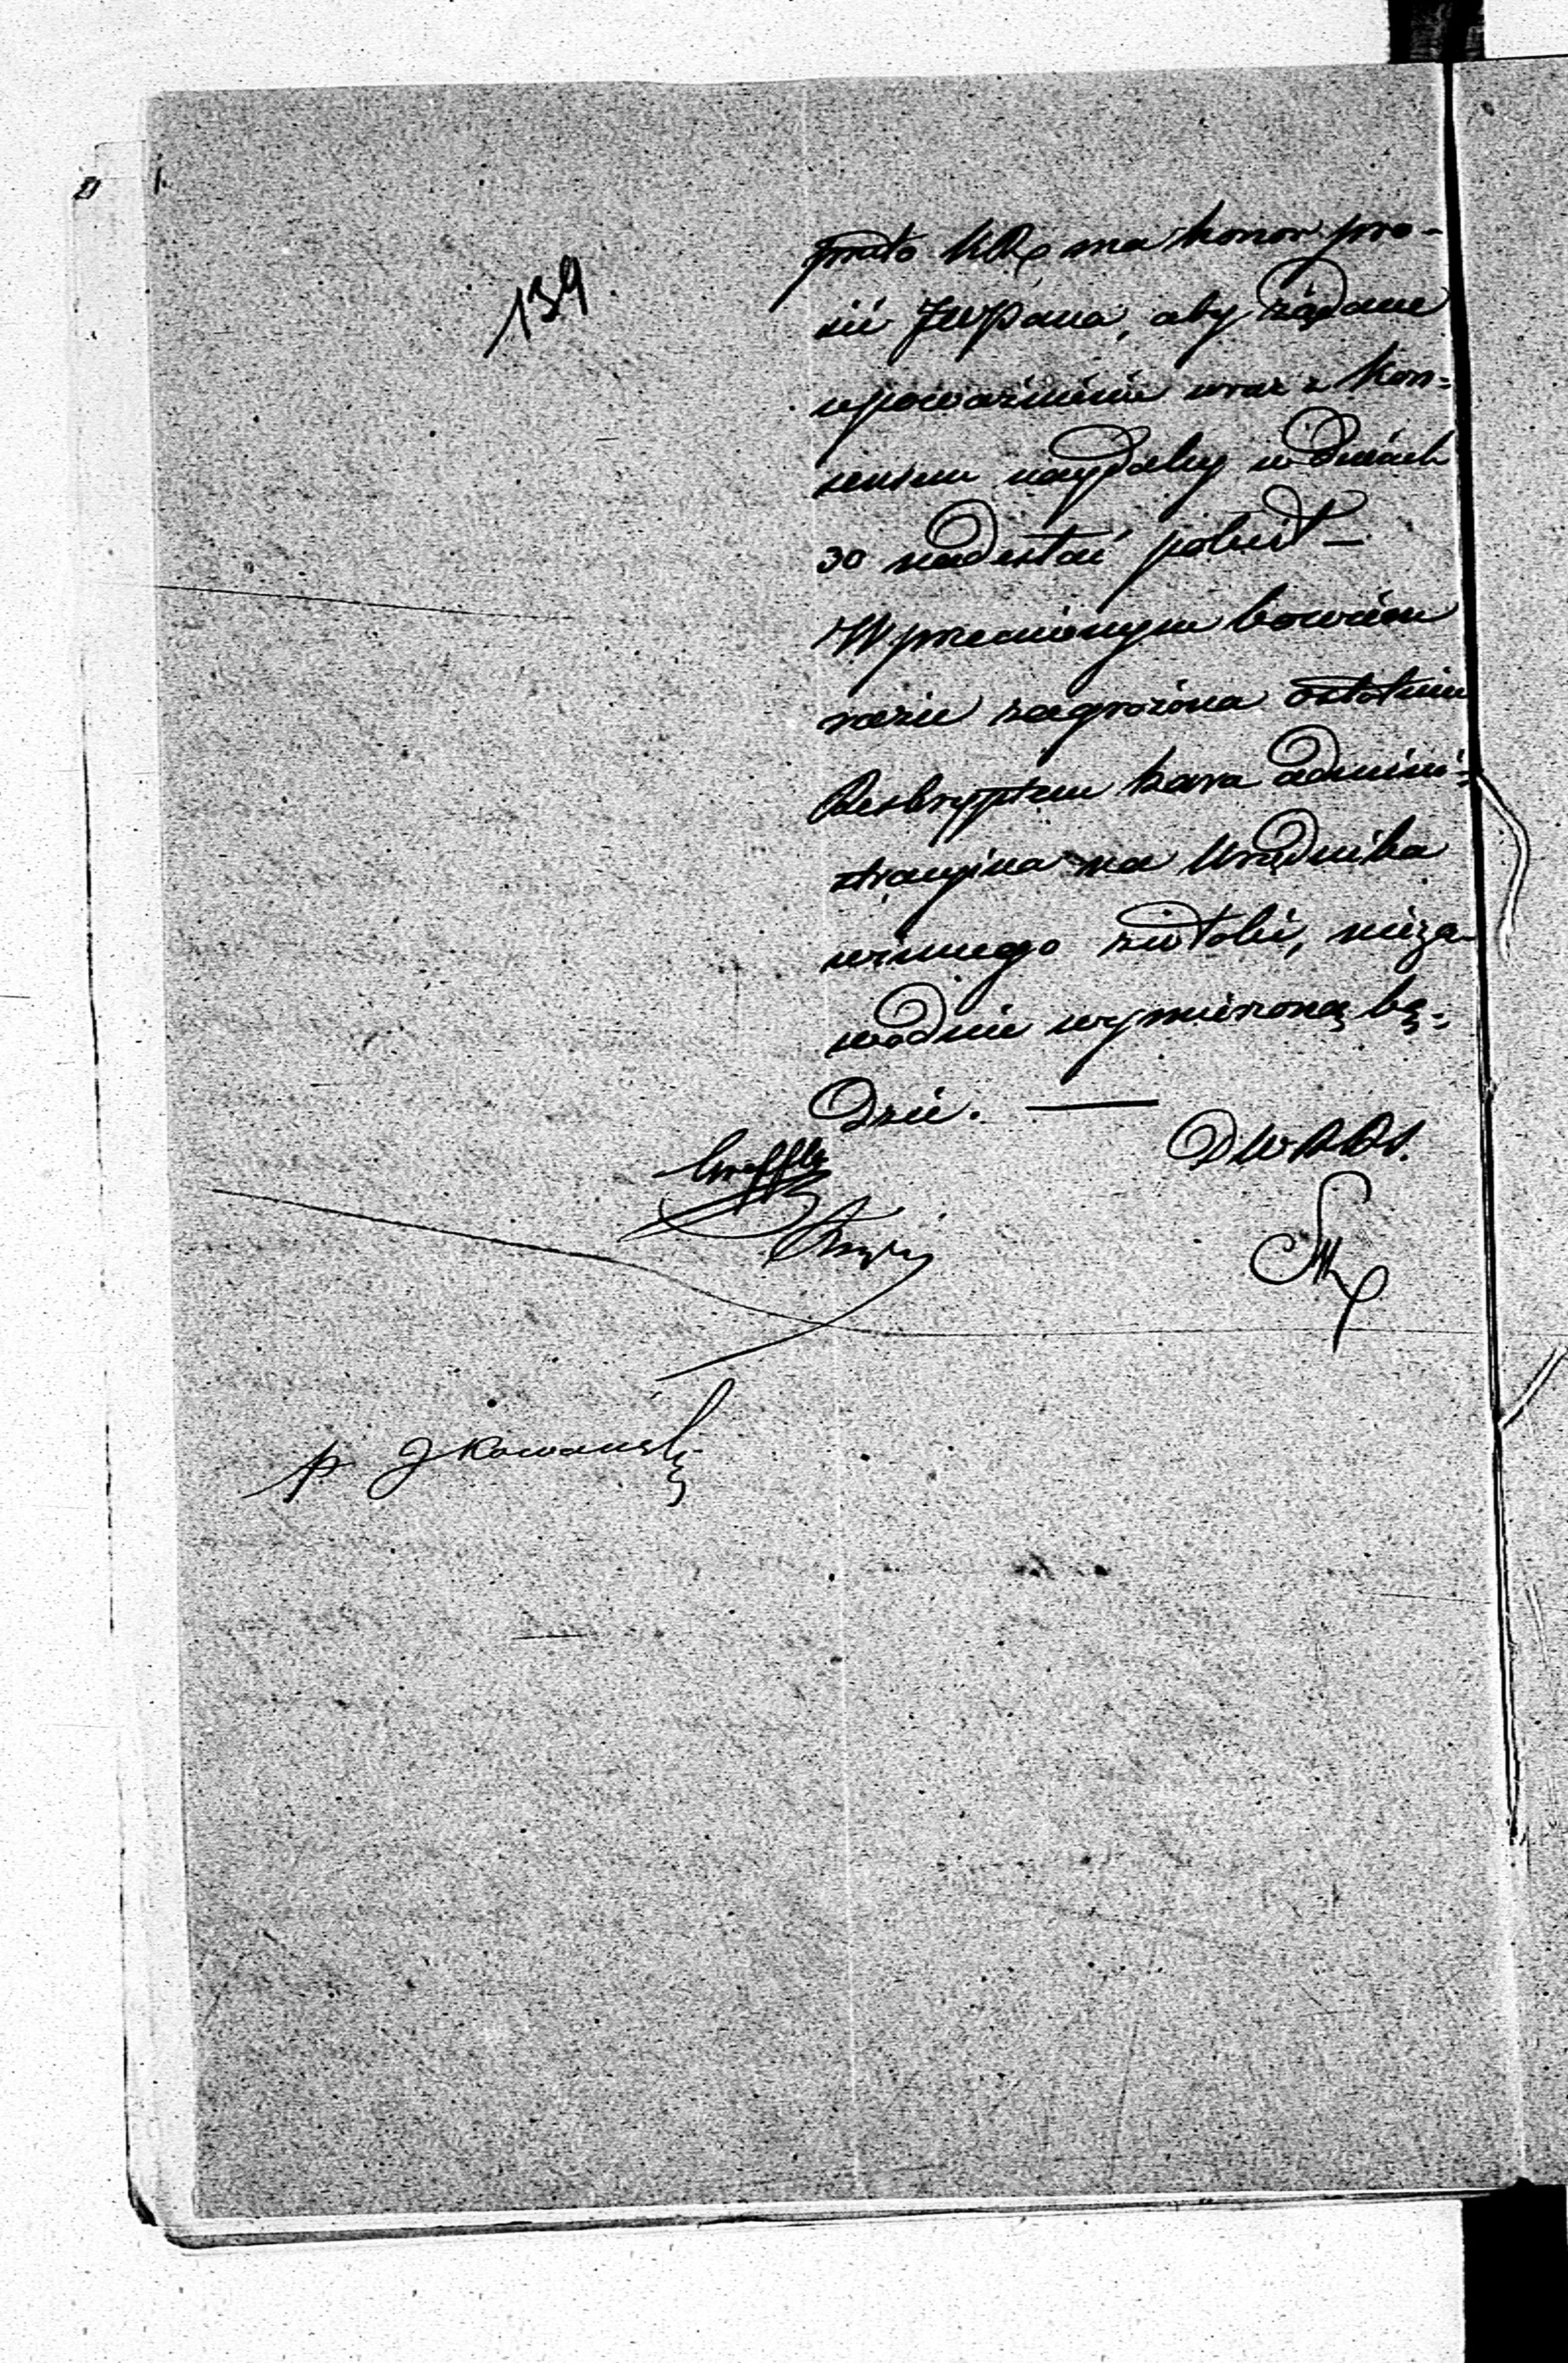 139.
przeto KR. ma honor pro-
sić JWPana, aby żądane
upoważnienie wraz z kon-
sensem naydaley w dniach
30 nadesłać polecił –
W przeciwnym bowiem
razie zagrożona ostatnim
Reskryptem kara admini-
stracyina na Urzędnika
winnego zwłoki, nieza-
wodnie wymierzoną bę-
dzie. —
DWRRS.